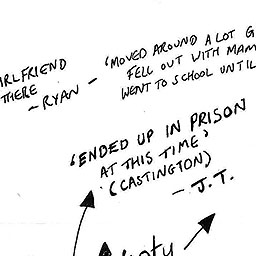 RLFRIEND
THERE
- RYAN -
'MOVED AROUND A LOT G
FELL OUT WITH MAM
WENT TO SCHOOL UNTIL
'ENDED UP IN PRISON
AT THIS TIME'
(CASTINGTON)
- J.T.